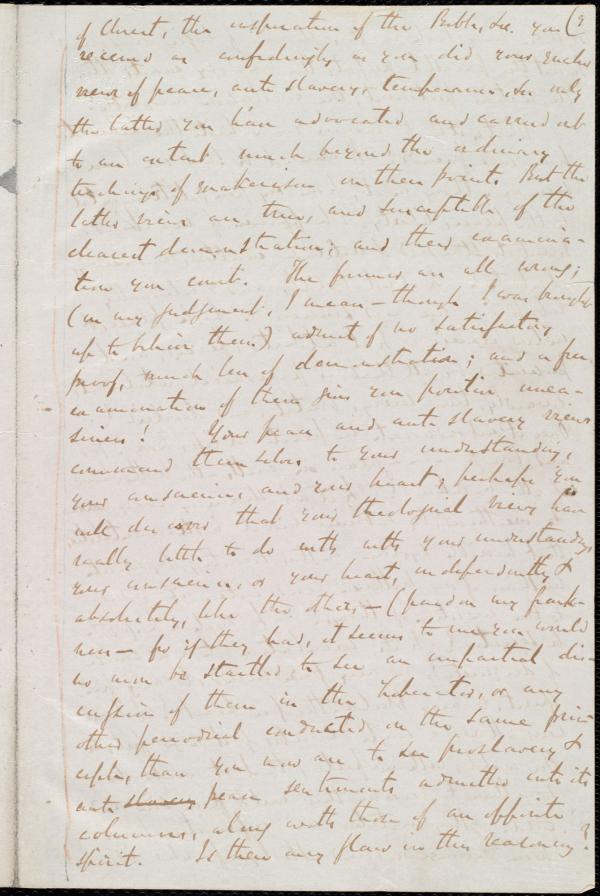 of Christ, the inspiration of the Bible, &c. you (9
received as confidingly as you did your Quaker
views of peace, anti slavery, temperance, &c only
the latter you have advocated and carried out
to an extent much beyond the ordinary
teachings of Quakerism on these points. But the
latter views are true, and susceptible of the
clearest demonstration; and their examina-
tion you court. The former are all wrong;
(in my judgment, I mean — though I was brought
up to believe them) admit of no satisfactory
proof, much less of demonstration; and a free
examination of them gives you positive unea-
siness! Your peace and anti slavery views
commend themselves to your understanding,
your conscience, and your heart; perhaps you
will discover that your theological views have
really little to do with your understanding,
your conscience, or your heart, independently &
absolutely, like the others — (pardon my frank-
ness — for if they had, it seems to me you would
no more be startled to see an impartial dis-
cussion of them in the Liberator, or any
other periodical conducted on the same prin-
ciple, than you now are to see proslavery &
anti slavery peace sentiments admitted into its
columns, along with those of an opposite
spirit. Is there any flaw in this reasoning?